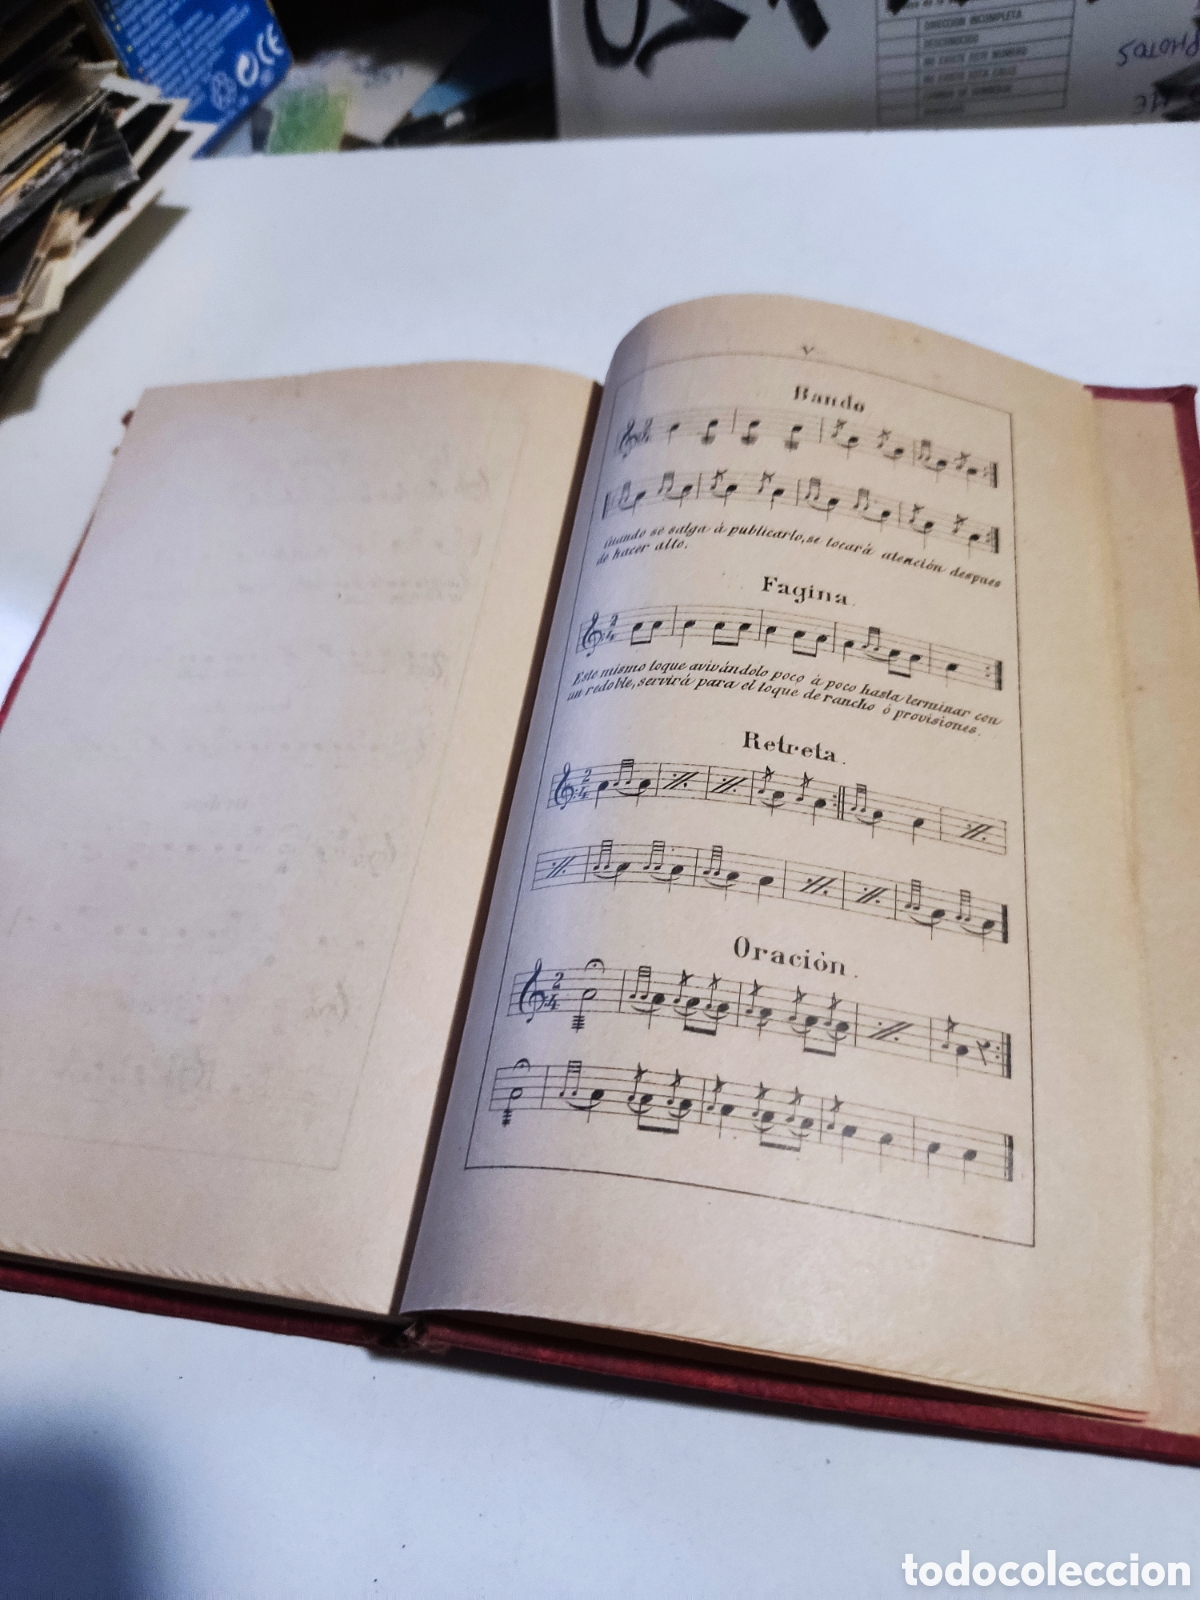 DIRECCION INCOMPLETA
DESCONOCIDO
PHOTOS
CE
V
Bando
Cuando se salga á publicarlo, se tocará atención despues
de hacer alto.
Fagina.
Este mismo toque avivándolo poco á poco hasta terminar con
un redoble, servirá para el toque de rancho ó provisiones.
Retreta.
Oración.
todocoleccion